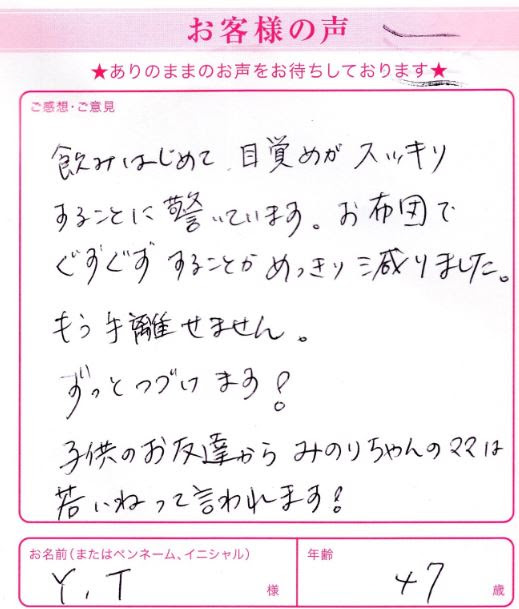 お客様の声
★ありのままのお声をお待ちしております★
ご感想・ご意見
飲みはじめて 目覚めが スッキリ
することに驚いています。お布団で
ぐずぐず することが めっきり減りました。
もう手離せません。
ずっとつづけます!
子供のお友達から みのりちゃんのママは
若いねって言われます!
お名前(またはペンネーム、イニシャル) 年齢
Y.T 様 47 歳